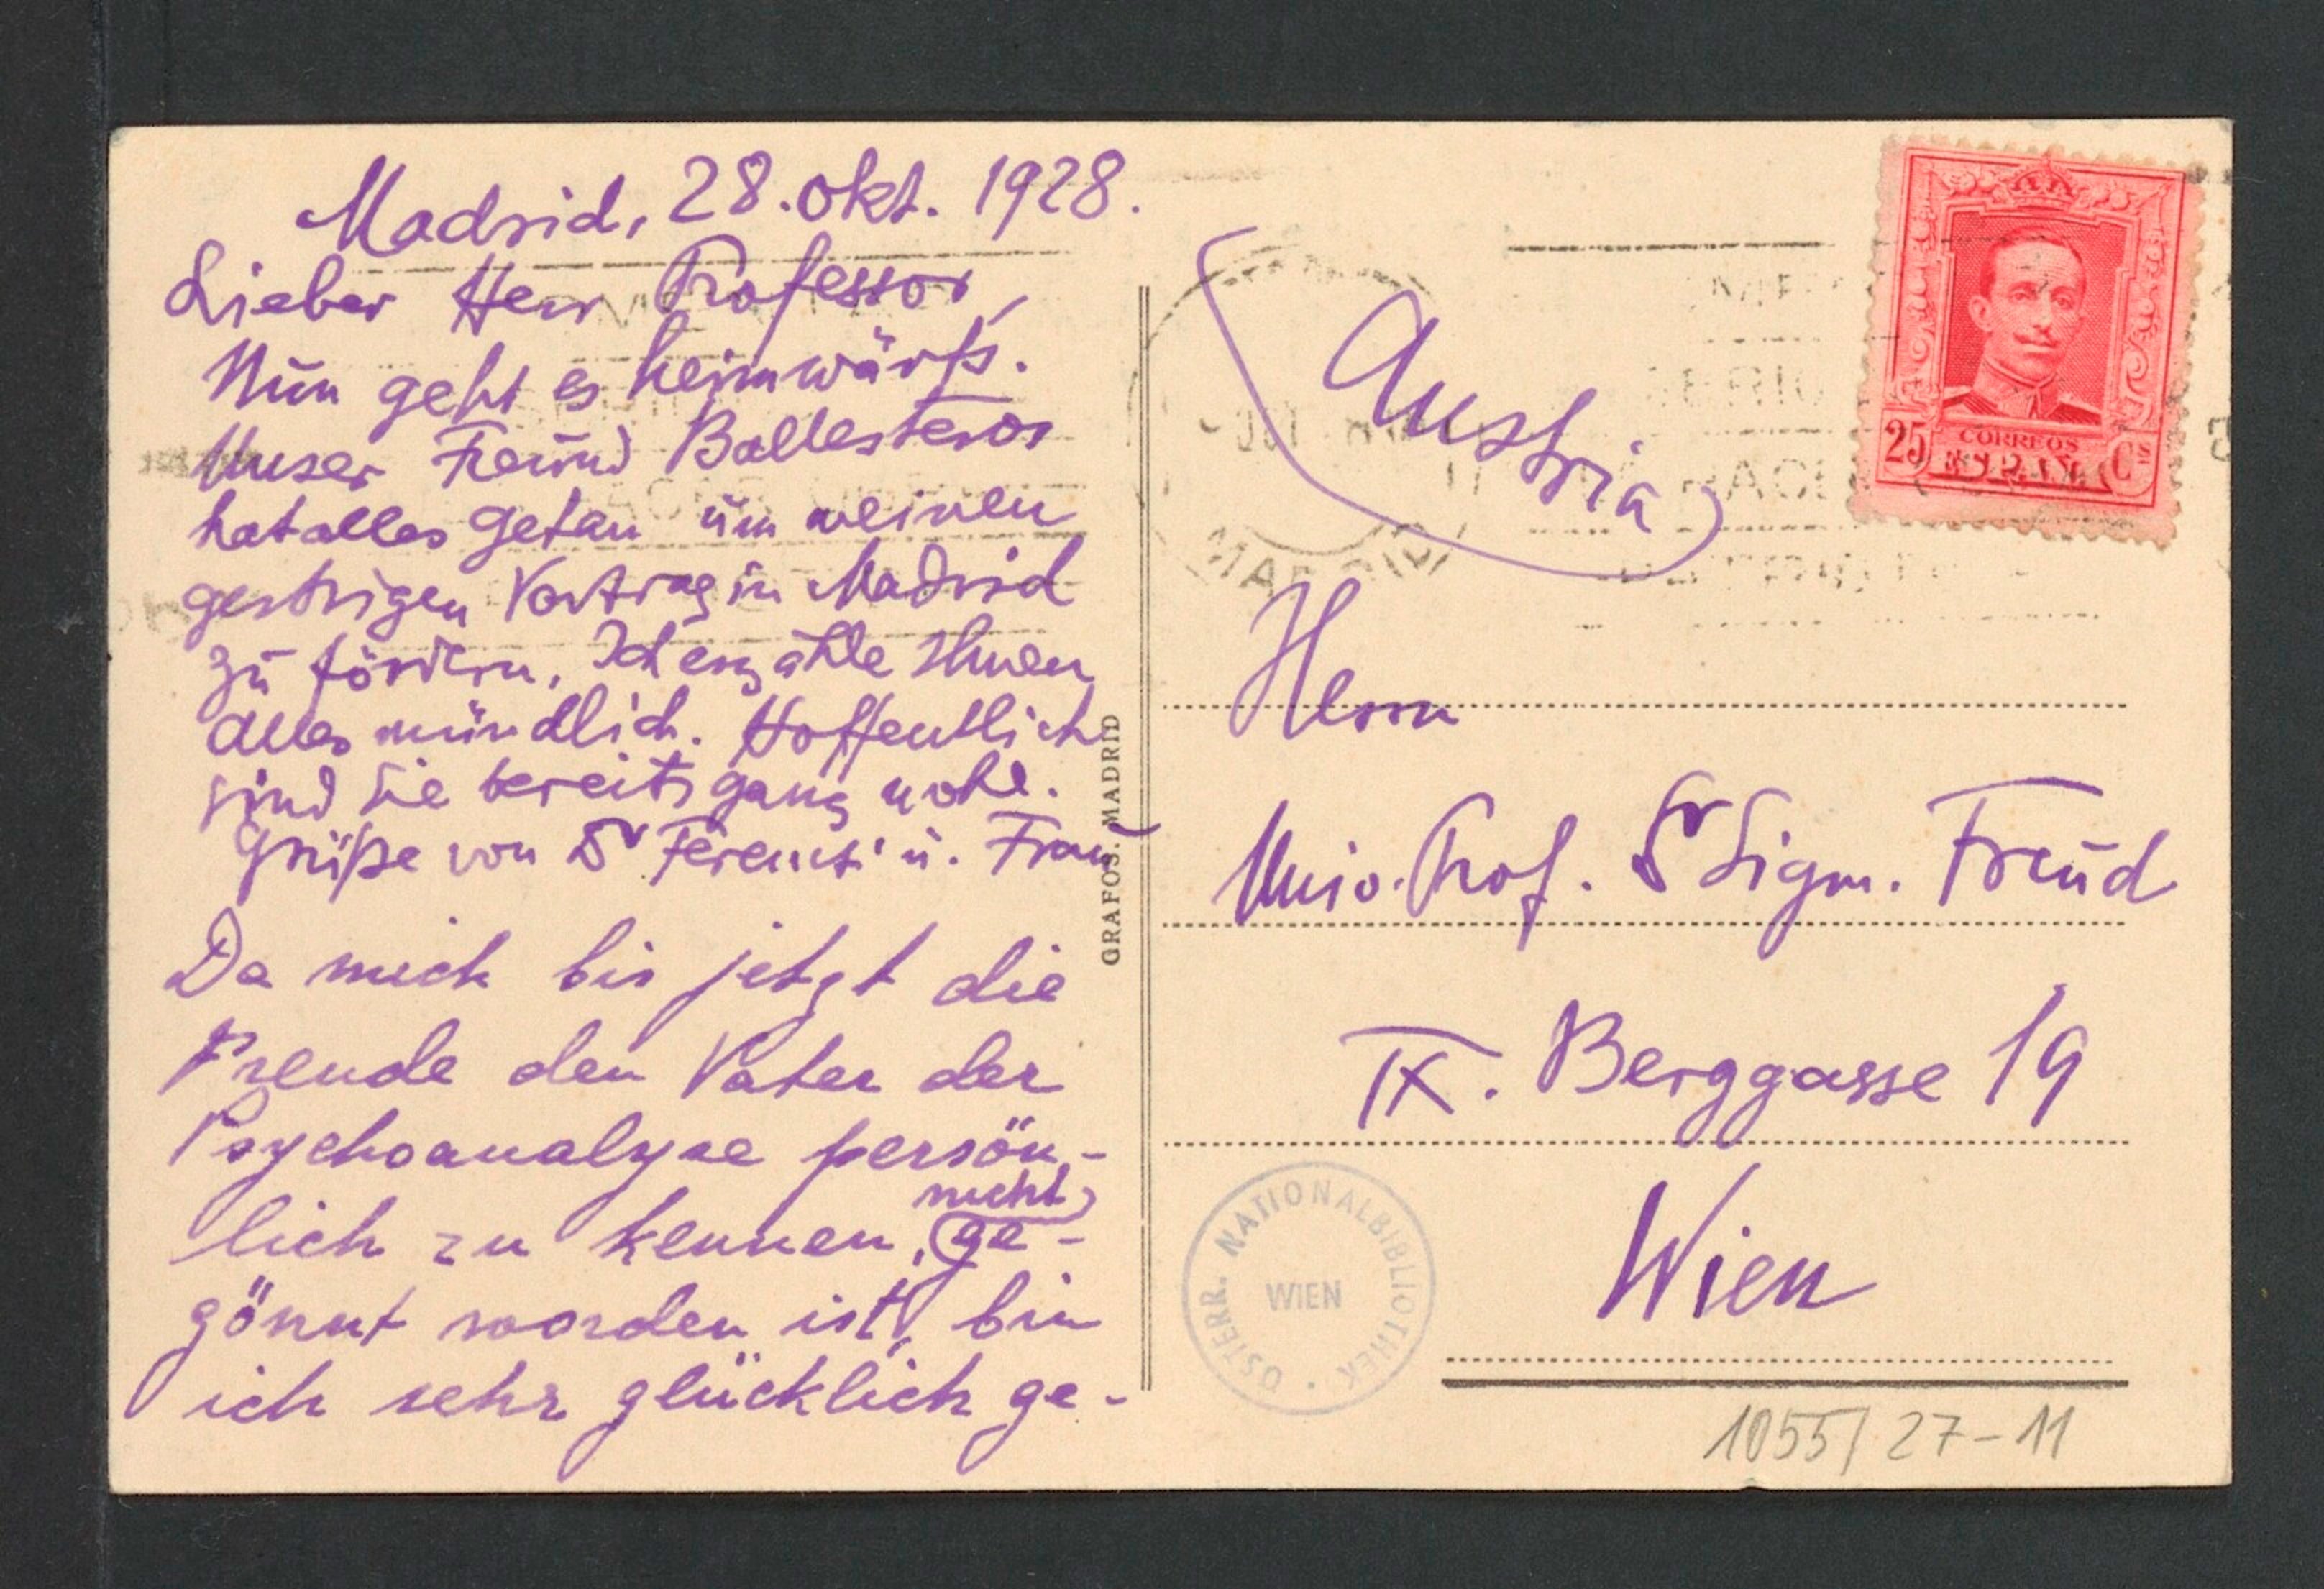 Madrid, 28. Okt. 1928.
Lieber Herr Professor,
Nun geht es heimwärts.
Unser Freund Ballesteros
hat alles getan um meinen
gestrigen Vortrag in Madrid
zu fördern. Ich erzähle Ihnen
alles mündlich. Hoffentlich
sind Sie bereits ganz wohl.
Grüße von Dr Ferenczi u. Frau
Da mich bis jetzt die
Freude den Vater der
Psychoanalyse persön-
lich zu kennen, nicht ge-
gönnt worden ist, bin
ich sehr glücklich ge-
GRAFOS. MADRID
(Austria)
25 CORREOS Cs
ESPAÑA
MADRID
Herrn
Univ. Prof. Dr Sigm. Freud
IX. Berggasse 19
Wien
ÖSTERR. NATIONALBIBLIOTHEK
WIEN
1055/27-11